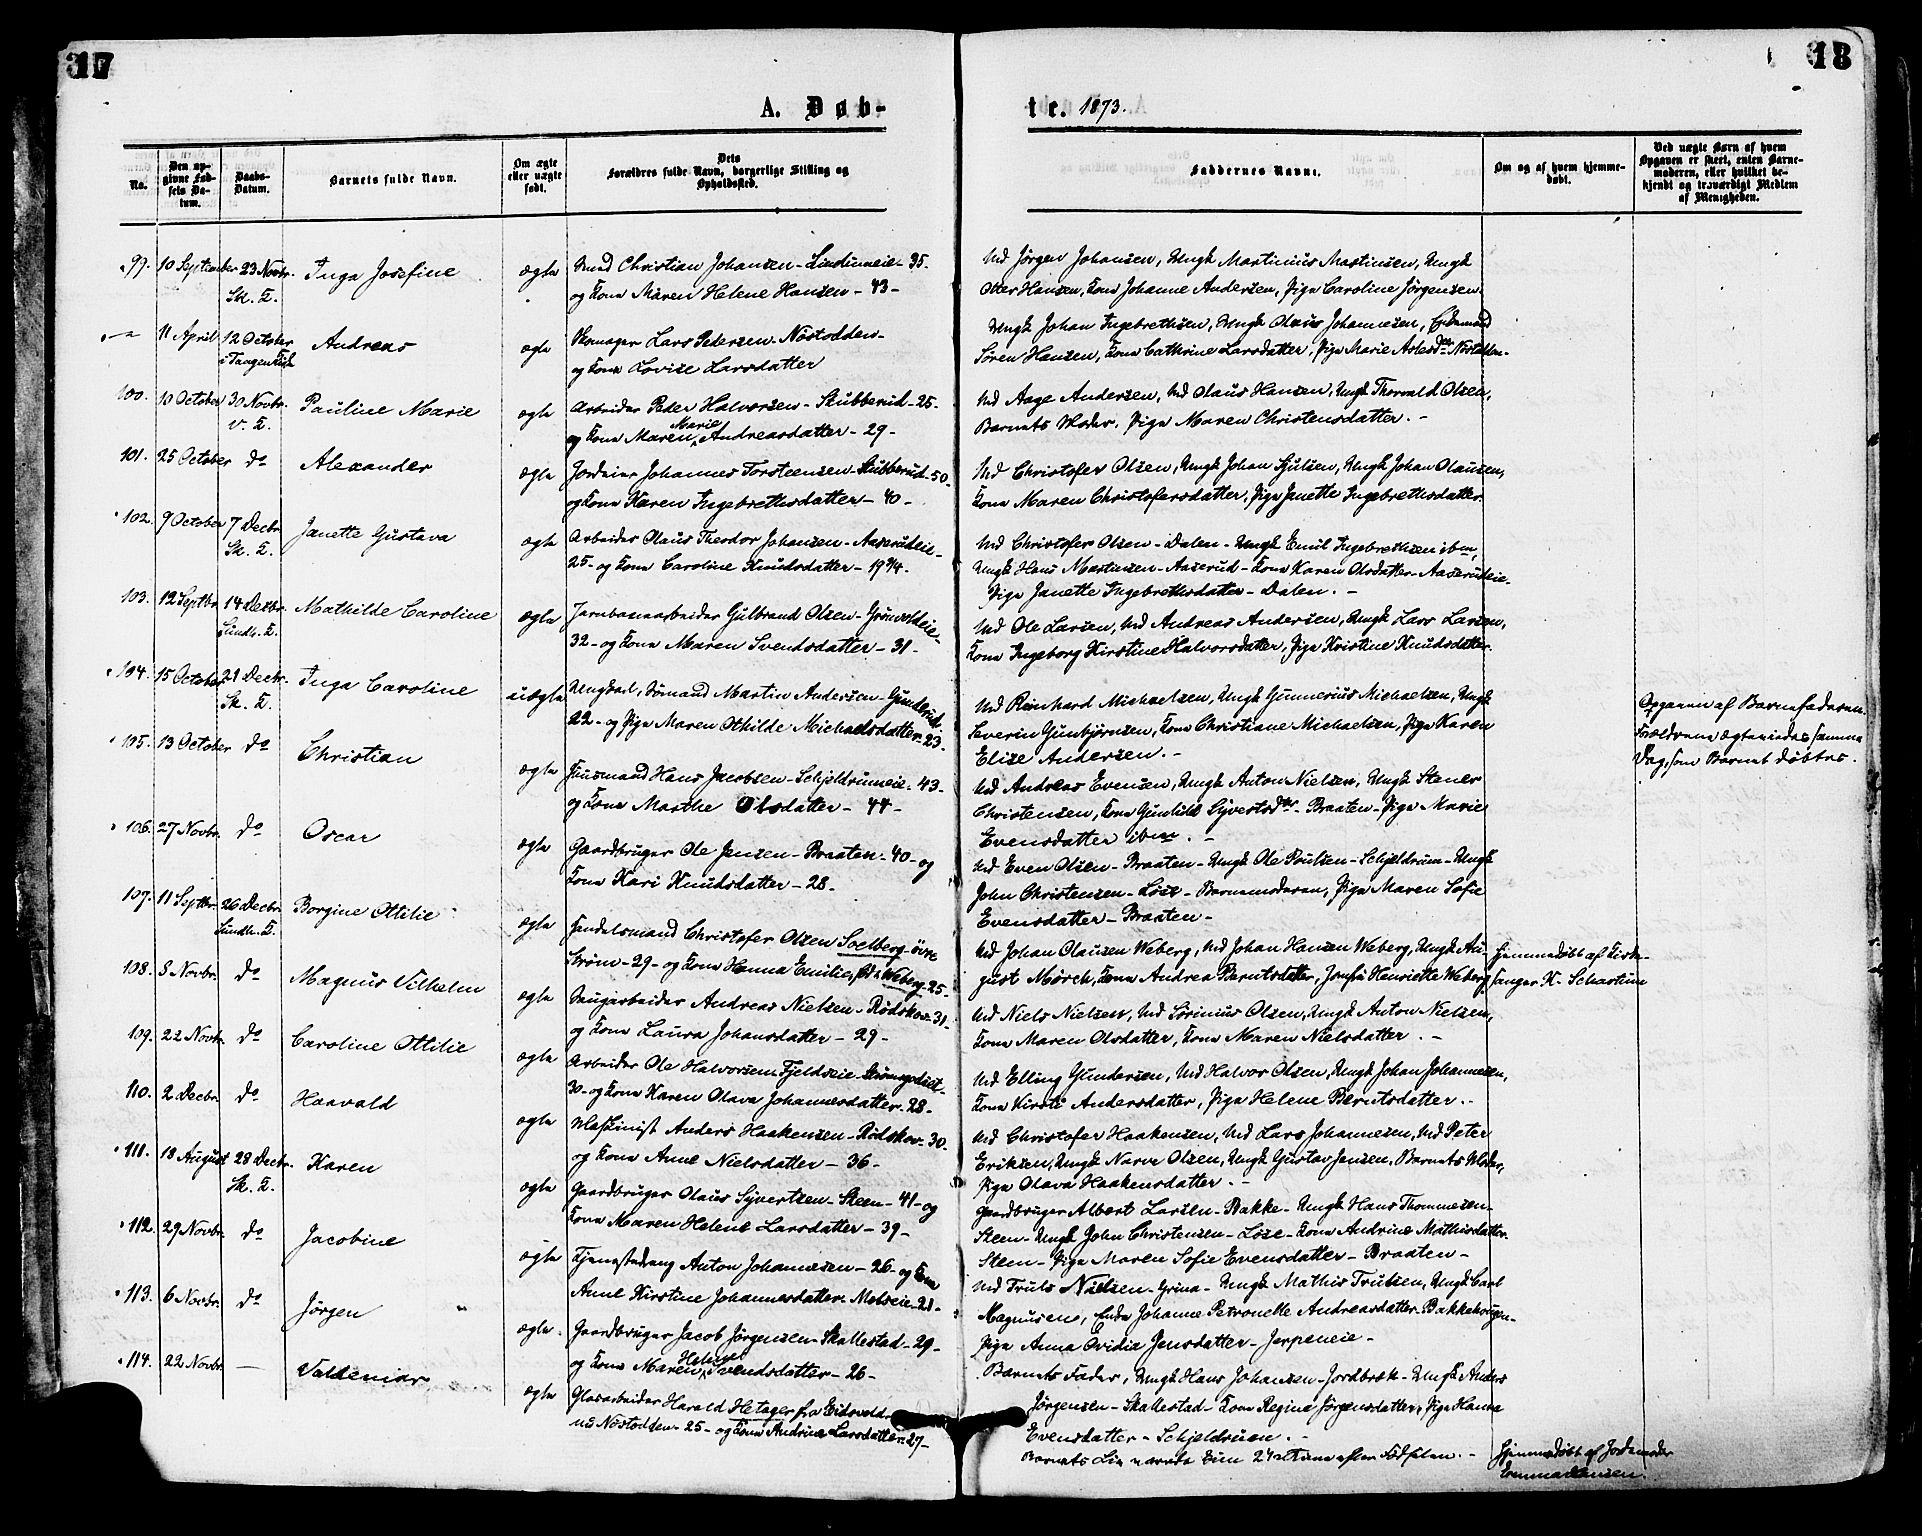 17
18
A. Døb-
te. 1873.
No.
Den opgivne Fødsels Datum.
Daabs-Datum.
Barnets fulde Navn.
Om ægte eller uægte født.
Dets Forældres fulde Navn, borgerlige Stilling og Opholdssted.
Faddernes Navne.
Om og af hvem hjemmedøbt.
Ved uægte Børn af hvem Opgaven er skeet, enten Barnemoderen, eller hvilket bekjendt og troværdigt Medlem af Menigheden.
99. 10 September 23 Novbr. Sk. K. Inga Josefine ægte Smed Christian Johansen - Lindumeie - 35 -
og Kone Maren Helene Hansen - 43 -
Md Jørgen Johansen, Ungk Martinius Martinsen, Ungk
Otter Hansen, Kone Johanne Andersen, Pige Caroline Jørgensen.
11 April 12 October i Tangen Kirk Andreas ægte Skomager Lars Pedersen - Nøstodden -
og Kone Lovise Larsdatter
Ungk Johan Ingebrethsen, Ungk Olaus Johannesen, Enkemand
Søren Hansen, Kone Cathrine Larsdatter, Pige Marie Aslesdtr Nøstodden -
100. 10 October 30 Novbr. V. K. Pauline Marie ægte Arbeider Peder Halvorsen - Stubberud - 25 -
og Kone Maren Marie Andreasdatter - 29 -
Md Aage Andersen, Md Olaus Hansen, Ungk Thorvald Olsen,
Barnets Moder, Pige Maren Christensdatter. -
101. 25 October do Alexander ægte Jordeier Johannes Torsteensen - Stubberud - 50 -
og Kone Karen Ingebrethsdatter - 40 -
Md Christofer Olsen, Ungk Johan Sjulsen, Ungk Johan Olausen,
Kone Maren Christofersdatter, Pige Janette Ingebrethsdatter.
102. 9 October 7 Decbr. Sk. K. Janette Gustava ægte Arbeider Olaus Theodor Johansen - Aaserudeie -
25 - og Kone Caroline Knudsdatter - 19 3/4.
Md Christofer Olsen - Dalen - Ungk Emil Ingebrethsen ibm,
Ungk Hans Martinsen - Aaserud - Kone Karen Olsdatter - Aaserudeie -
Pige Janette Ingebrethsdatter - Dalen. -
103. 12 Septbr. 14 Decbr. Sundh. K. Mathilde Caroline ægte Jernbanearbeider Gulbrand Olsen - Grønvoldeie -
32 - og Kone Maren Svendsdatter - 31 -
Md Ole Larsen, Md Andreas Andersen, Ungk Lars Larsen,
Kone Ingeborg Kirstine Halvorsdatter, Pige Kristine Knudsdatter.
104. 15 October 21 Decbr. Sk. K. Inga Caroline uægte Ungkarl, Sømand Martin Andersen - Gunderud -
22 - og Pige Maren Othilde Michaelsdatter - 23 -
Md Reinhard Michaelsen, Ungk Gunnerius Michaelsen, Ungk
Severin Gunbjørnsen, Kone Christiane Michaelsen, Pige Karen
Elise Andersen. -
Opgaven af Barnefaderen.
Forældrene ægteviedes samme
Dag, som Barnet døbtes.
105. 13 October do Christian ægte Huusmand Hans Jacobsen - Schjeldrumeie - 43 -
og Kone Marthe Olsdatter - 44 -
Md Andreas Evensen, Ungk Anton Nielsen, Ungk Stener
Christensen, Kone Gunhild Syvertsdtr - Braaten - Pige Marie
Evensdatter ibm. -
106. 27 Novbr. do Oscar ægte Gaardbruger Ole Jensen - Braaten - 40 - og
Kone Kari Knudsdatter - 28 -
Md Even Olsen - Braaten - Ungk Ole Poulsen - Schjeldrum - Ungk
John Christensen - Løse - Barnemoderen, Pige Maren Sofie
Evensdatter - Braaten -
107. 11 Septbr. 26 Decbr. Sundh. K. Borgine Ottilie ægte Handelsmand Christofer Olsen Soelberg - övre
Strøm - 29 - og Kone Hanna Emilie, født Weberg - 25 -
Md Johan Olausen Weberg, Md Johan Hansen Weberg, Ungk Au-
gust Mørch, Kone Andrea Berntsdatter, Jomfru Henriette Weberg.
Hjemmedøbt af Kirke-
sanger K. Schartum
108. 8 Novbr. do Magnus Vilhelm ægte Brugarbeider Andreas Nielsen - Rødskov - 31 -
og Kone Laura Johansdatter - 29 -
Md Niels Nielsen, Md Sørinius Olsen, Ungk Anton Nielsen,
Kone Maren Olsdatter, Kone Maren Nielsdatter. -
109. 22 Novbr. do Caroline Ottilie ægte Arbeider Ole Halvorsen - Fjeldseie - Strømsgodset
30 - og Kone Karen Olava Johannesdatter - 28 -
Md Elling Gundersen, Md Halvor Olsen, Ungk Johan Johannesen,
Kone Kirsti Andersdatter, Pige Helene Berntsdatter. -
110. 2 Decbr. do Haavald ægte Maskinist Anders Haakensen - Rødskov - 30 -
og Kone Anne Nielsdatter - 36 -
Md Christofer Haakensen, Md Lars Johannesen, Md Peter
Eriksen, Ungk Narve Olsen, Ungk Gustav Jensen, Barnets Moder,
Pige Olava Haakensdatter. -
111. 18 August 28 Decbr. Sk. K. Karen ægte Gaardbruger Olaus Syvertsen - Steen - 41 - og
Kone Maren Helene Larsdatter - 39 -
Gaardbruger Albert Larsen - Bakke - Ungk Hans Thommesen -
Steen - Ungk John Christensen - Løse - Kone Andrine Mathisdatter -
Steen - Pige Maren Sofie Evensdatter - Braaten -
112. 29 Novbr. do Jacobine ægte Tjenestedreng Anton Johannesen - 26 - og Kone
Anne Kirstine Johannesdatter - Moleeie - 21 -
Md Truls Nielsen - Grina - Ungk Mathis Trulsen, Ungk Carl
Magnusen, Enke Johanne Petronelle Andreasdatter - Bakkehougen -
Pige Anna Ovidia Jensdatter - Jerpeneie -
113. 6 Novbr. do Jørgen ægte Gaardbruger Jacob Jørgensen - Skallestad - 29 -
og Kone Maren Helene Svendsdatter - 26 -
Barnets Fader, Ungk Hans Johansen - Jordbræk - Ungk Anders
Jørgensen - Skallestad - Kone Regine Jørgensdatter, Pige Hanna
Evensdatter - Schjeldruen. -
114. 22 Novbr. — Valdemar ægte Glasarbeider Harald Hetager fra Eidsvold,
nu Nøstodden - 25 - og Kone Andrine Larsdatter - 27 -
Barnets Liv varede kun 24 Timer efter Fødselen. -
Hjemmedøbt af Jordemoder
Emma Hansen.